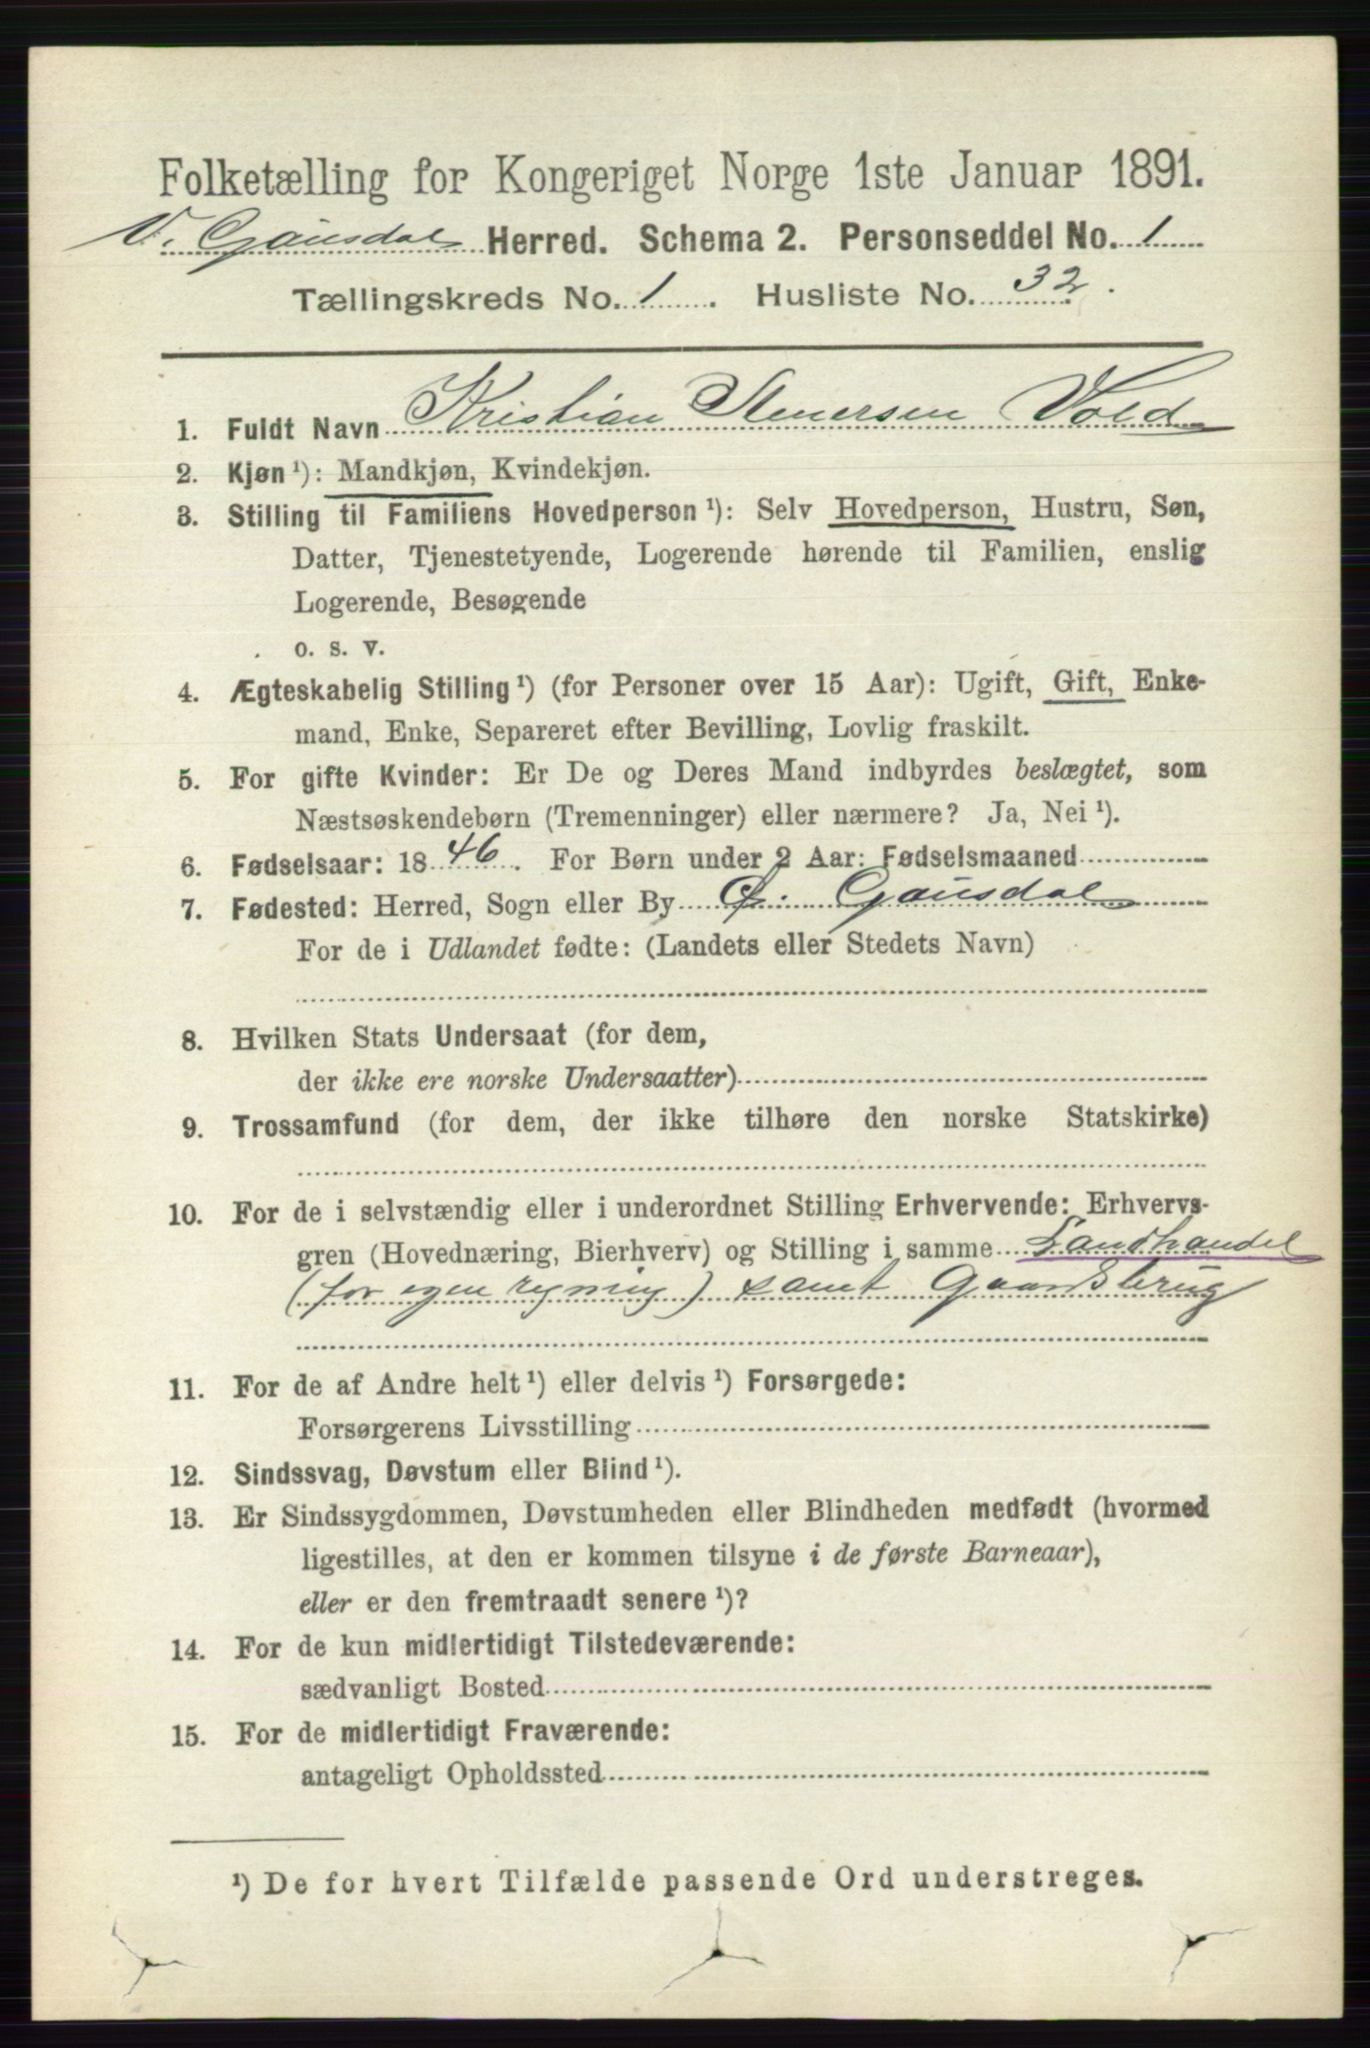 Folketælling for Kongeriget Norge 1ste Januar 1891.
V. Gausdal Herred. Schema 2. Personseddel No. 1
Tællingskreds No. 1. Husliste No. 32.
1. Fuldt Navn Kristian Stenersen Vold
2. Kjøn ¹): Mandkjøn, Kvindekjøn.
3. Stilling til Familiens Hovedperson ¹): Selv Hovedperson, Hustru, Søn,
Datter, Tjenestetyende, Logerende hørende til Familien, enslig
Logerende, Besøgende
o. s. v.
4. Ægteskabelig Stilling ¹) (for Personer over 15 Aar): Ugift, Gift, Enke-
mand, Enke, Separeret efter Bevilling, Lovlig fraskilt.
5. For gifte Kvinder: Er De og Deres Mand indbyrdes beslægtet, som
Næstsøskendebørn (Tremenninger) eller nærmere? Ja, Nei ¹).
6. Fødselsaar: 1846. For Børn under 2 Aar: Fødselsmaaned
7. Fødested: Herred, Sogn eller By Ø. Gausdal
For de i Udlandet fødte: (Landets eller Stedets Navn)
8. Hvilken Stats Undersaat (for dem,
der ikke ere norske Undersaatter)
9. Trossamfund (for dem, der ikke tilhøre den norske Statskirke)
10. For de i selvstændig eller i underordnet Stilling Erhvervende: Erhvervs-
gren (Hovednæring, Bierhverv) og Stilling i samme Landhandel
(for egen regning) samt Gaardsbrug
11. For de af Andre helt ¹) eller delvis ¹) Forsørgede:
Forsørgerens Livsstilling
12. Sindssvag, Døvstum eller Blind ¹).
13. Er Sindssygdommen, Døvstumheden eller Blindheden medfødt (hvormed
ligestilles, at den er kommen tilsyne i de første Barneaar),
eller er den fremtraadt senere ¹)?
14. For de kun midlertidigt Tilstedeværende:
sædvanligt Bosted
15. For de midlertidigt Fraværende:
antageligt Opholdssted
¹) De for hvert Tilfælde passende Ord understreges.